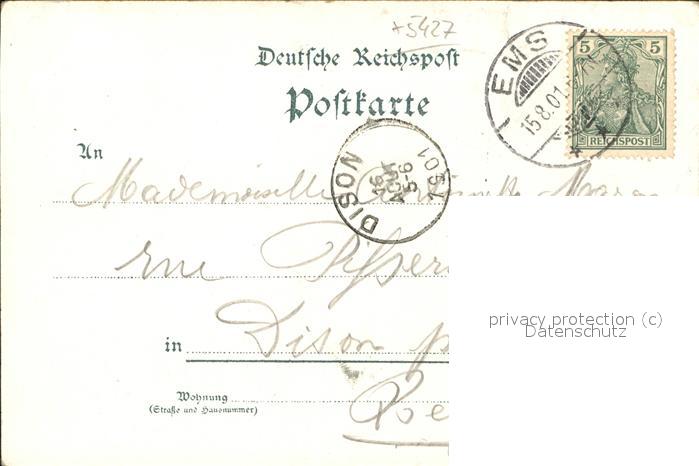 +5427
Deutsche Reichspost
Postkarte
EMS
15.8.01
5 5
REICHSPOST
DISON
16
AOUT
5-6
1901
An
Mademoiselle
rue
in Dison
Wohnung
(Straße und Hausnummer)
privacy protection (c)
Datenschutz